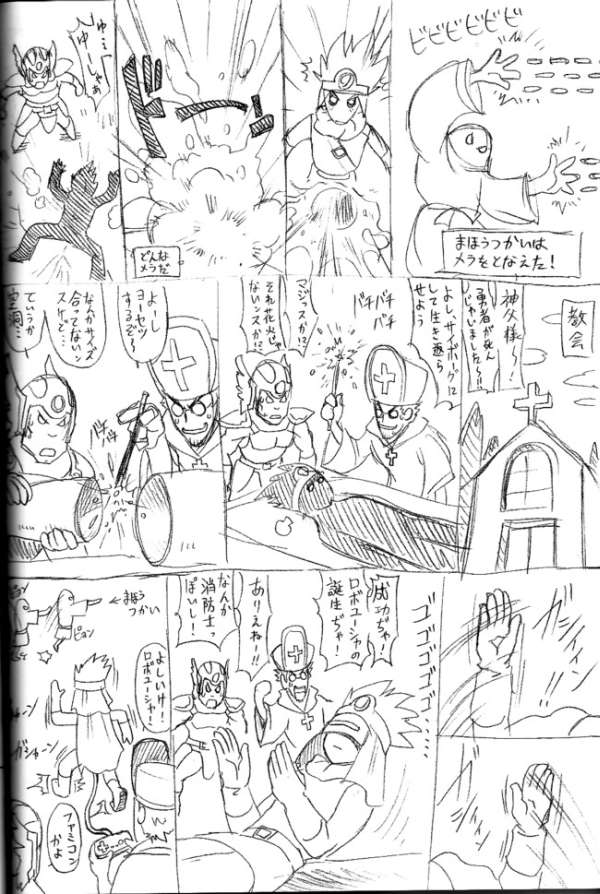 ビビビビビビ
まほうつかいは
メラをとなえた！
ドーン
どんな
メラだ
ゆ…
ゆーしゃぁ
教会
神父様〜！
勇者が死ん
じゃいました〜!!
よし、サイボーグに
して生き返ら
せよう
バチ
バチ
バチ
マジッスか!?
それ花火じゃ
ないンスか!?
よーし
ヨーセツ
するぞ〜
バチ
バチ
なんかサイズ
合ってないン
スケど…
ていうか
空洞…
ゴゴゴゴゴ
成功ぢゃ！
ロボユーシャの
誕生ぢゃ！
ありえねー!!
なんか
消防士っ
ぽいし！
←まほう
つかい
ピョン
よしいけ！
ロボユーシャ！
ガシャーン
ファミコン
かよ